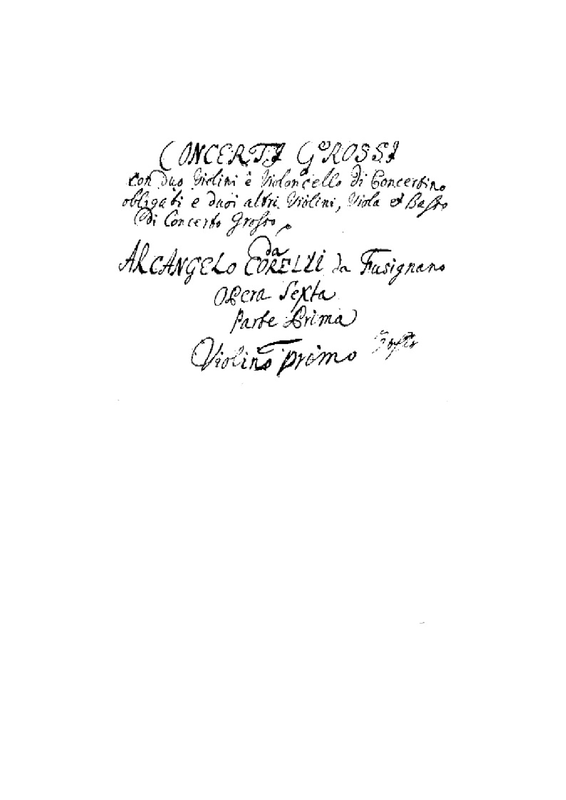 CONCERTI GROSSI
con duo Violini è Violoncello di Concertino
obligati e duoi altri Violini, Viola et Basso
di Concerto Grosso
da
ARCANGELO CORELLI da Fusignano
Opera Sexta
Parte Prima
Violino primo